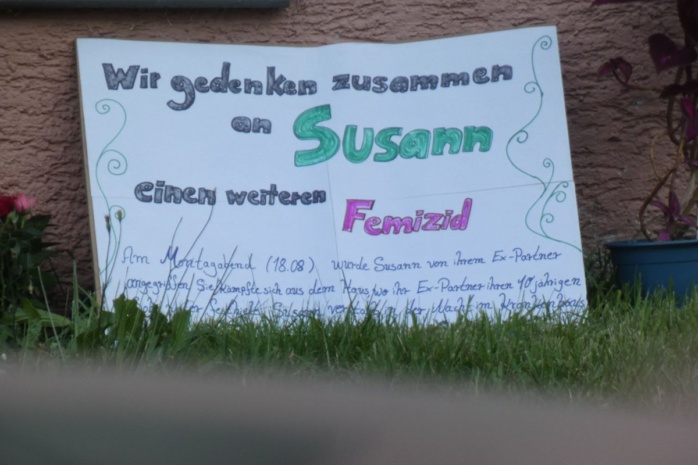 Wir gedenken zusammen
an Susann
einen weiteren Femizid
Am Montagabend (18.08) wurde Susann von ihrem Ex-Partner
angegriffen Sie kämpfte sich aus dem Haus, wo ihr Ex-Partner ihren 40 jährigen
Susann in der Nacht im Krankenhaus